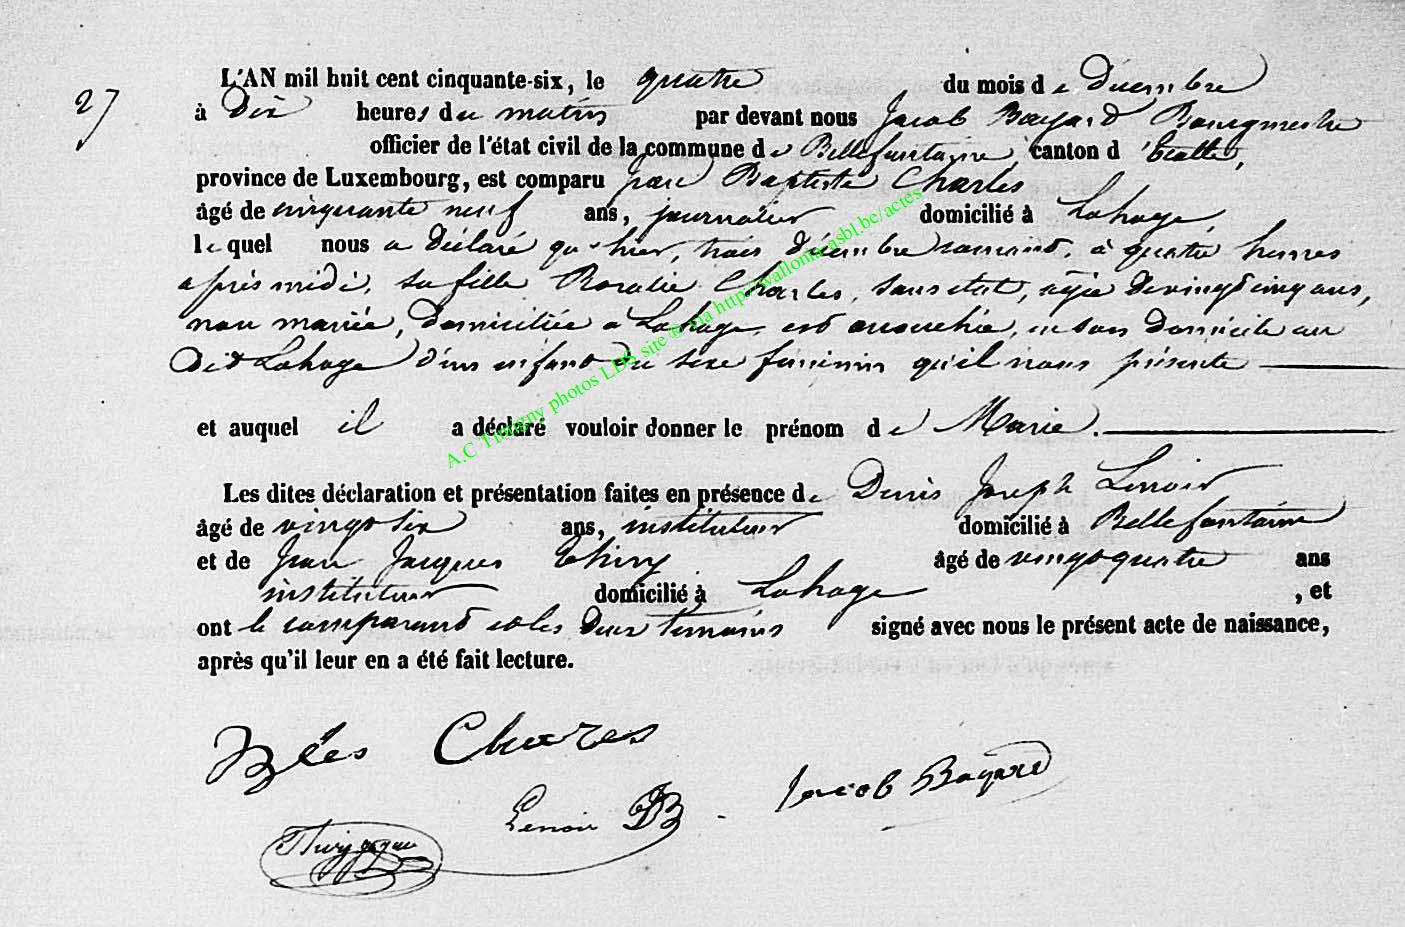 27
L'AN mil huit cent cinquante-six, le quatre du mois de Décembre
à Dix heures du matin par devant nous Jacob Bayard Bourgmestre
officier de l'état civil de la commune de Bellefontaine, canton d'Etalle,
province de Luxembourg, est comparu Jean Baptiste Charles
âgé de cinquante neuf ans, journalier domicilié à Lahage,
lequel nous a déclaré qu'hier, trois décembre courant, à quatre heures
après midi, sa fille Rosalie Charles, sans état, agée de vingt cinq ans,
non mariée, domiciliée à Lahage, est accouchée, en son domicile au
dit Lahage d'un enfant du sexe féminin qu'il nous présente
et auquel il a déclaré vouloir donner le prénom de Marie.
Les dites déclaration et présentation faites en présence de Denis Joseph Lenoir
âgé de vingt six ans, instituteur domicilié à Bellefontaine
et de Jean Jacques Thiry âgé de vingt quatre ans
instituteur domicilié à Lahage, et
ont le comparant et les deux témoins signé avec nous le présent acte de naissance,
après qu'il leur en a été fait lecture.
Charles
Jacob Bayard
Lenoir DJ
Thiry
A.C Tintigny photos LDS site ® via http://wallonia-asbl.be/actes